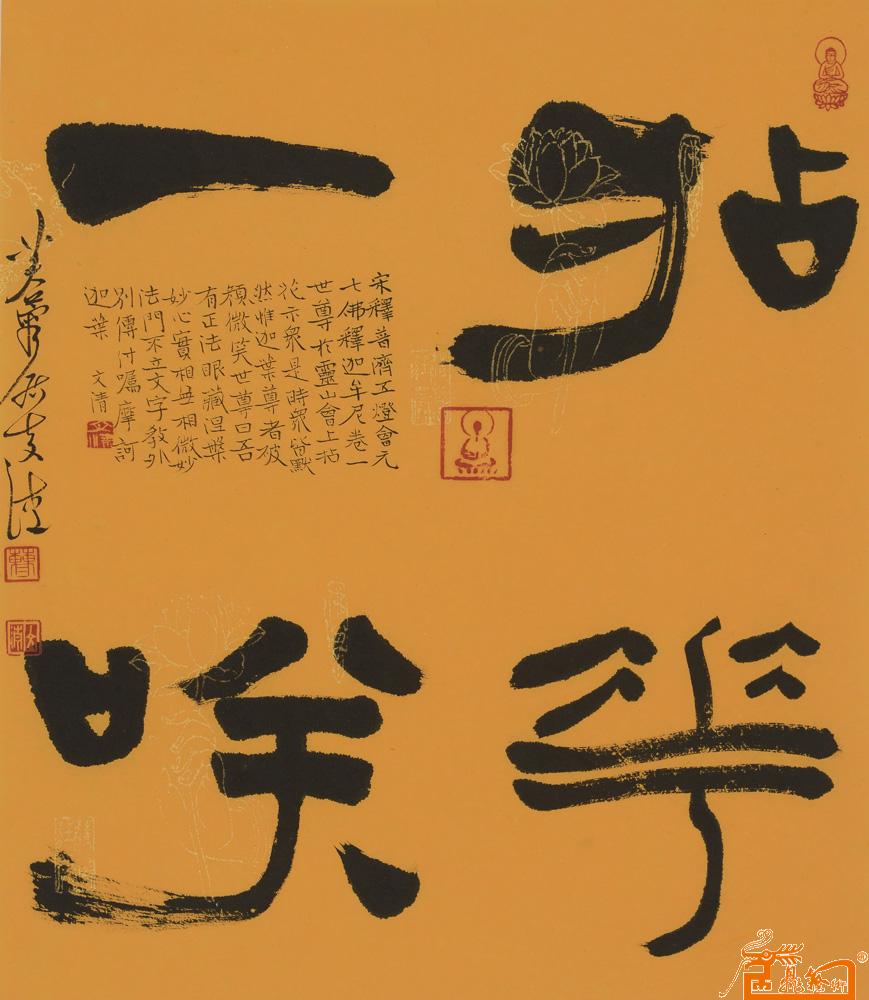 拈華
一咲
宋釋普濟五燈會元
七佛釋迦牟尼卷一
世尊於靈山會上拈
花示衆是時衆皆默
然惟迦葉尊者破
顏微笑世尊曰吾
有正法眼藏涅槃
妙心實相無相微妙
法門不立文字教外
別傳付囑摩訶
迦葉 文清